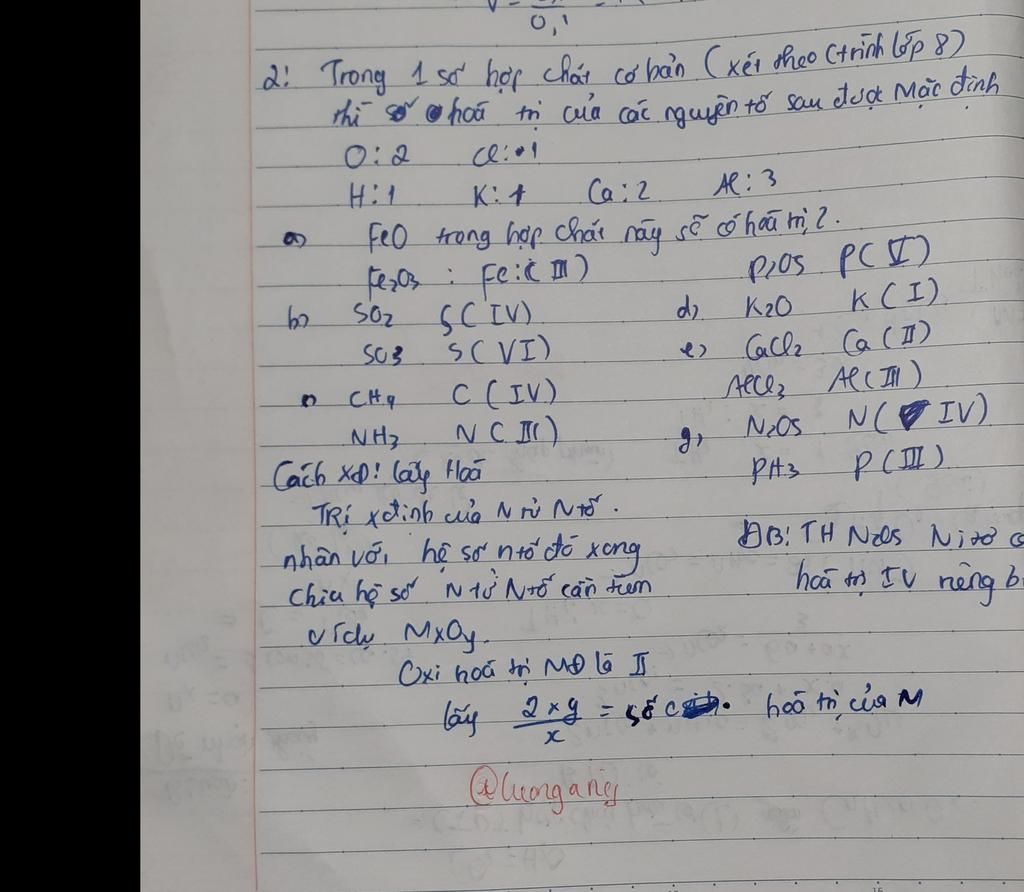 0,1
2: Trong 1 số hợp chất cơ bản (xét theo ctrình lớp 8)
thì số hoá trị của các nguyên tố sau được Mặc định
O: 2 Cl: 1
H: 1 K: 1 Ca: 2 Al: 3
a) FeO trong hợp chất này sẽ có hoá trị 2.
Fe2O3 : Fe: (III)
b) SO2 S (IV)
SO3 S (VI)
CH4 C (IV)
NH3 N (III)
P2O5 P (V)
d) K2O K (I)
e) CaCl2 Ca (II)
AlCl3 Al (III)
g) N2O5 N (IV)
PH3 P (III)
Cách XĐ: lấy Hoá
TRị xđịnh của N tử Ntố.
nhân với hệ số ntố đó xong
chia hệ số N tử Ntố cần tìm
ví dụ MxOy.
Oxi hoá trị MĐ là II
lấy 2 x y / x = số hoá trị của M
ĐB: TH N2O5 Nitơ
hoá trị IV riêng
@luongang